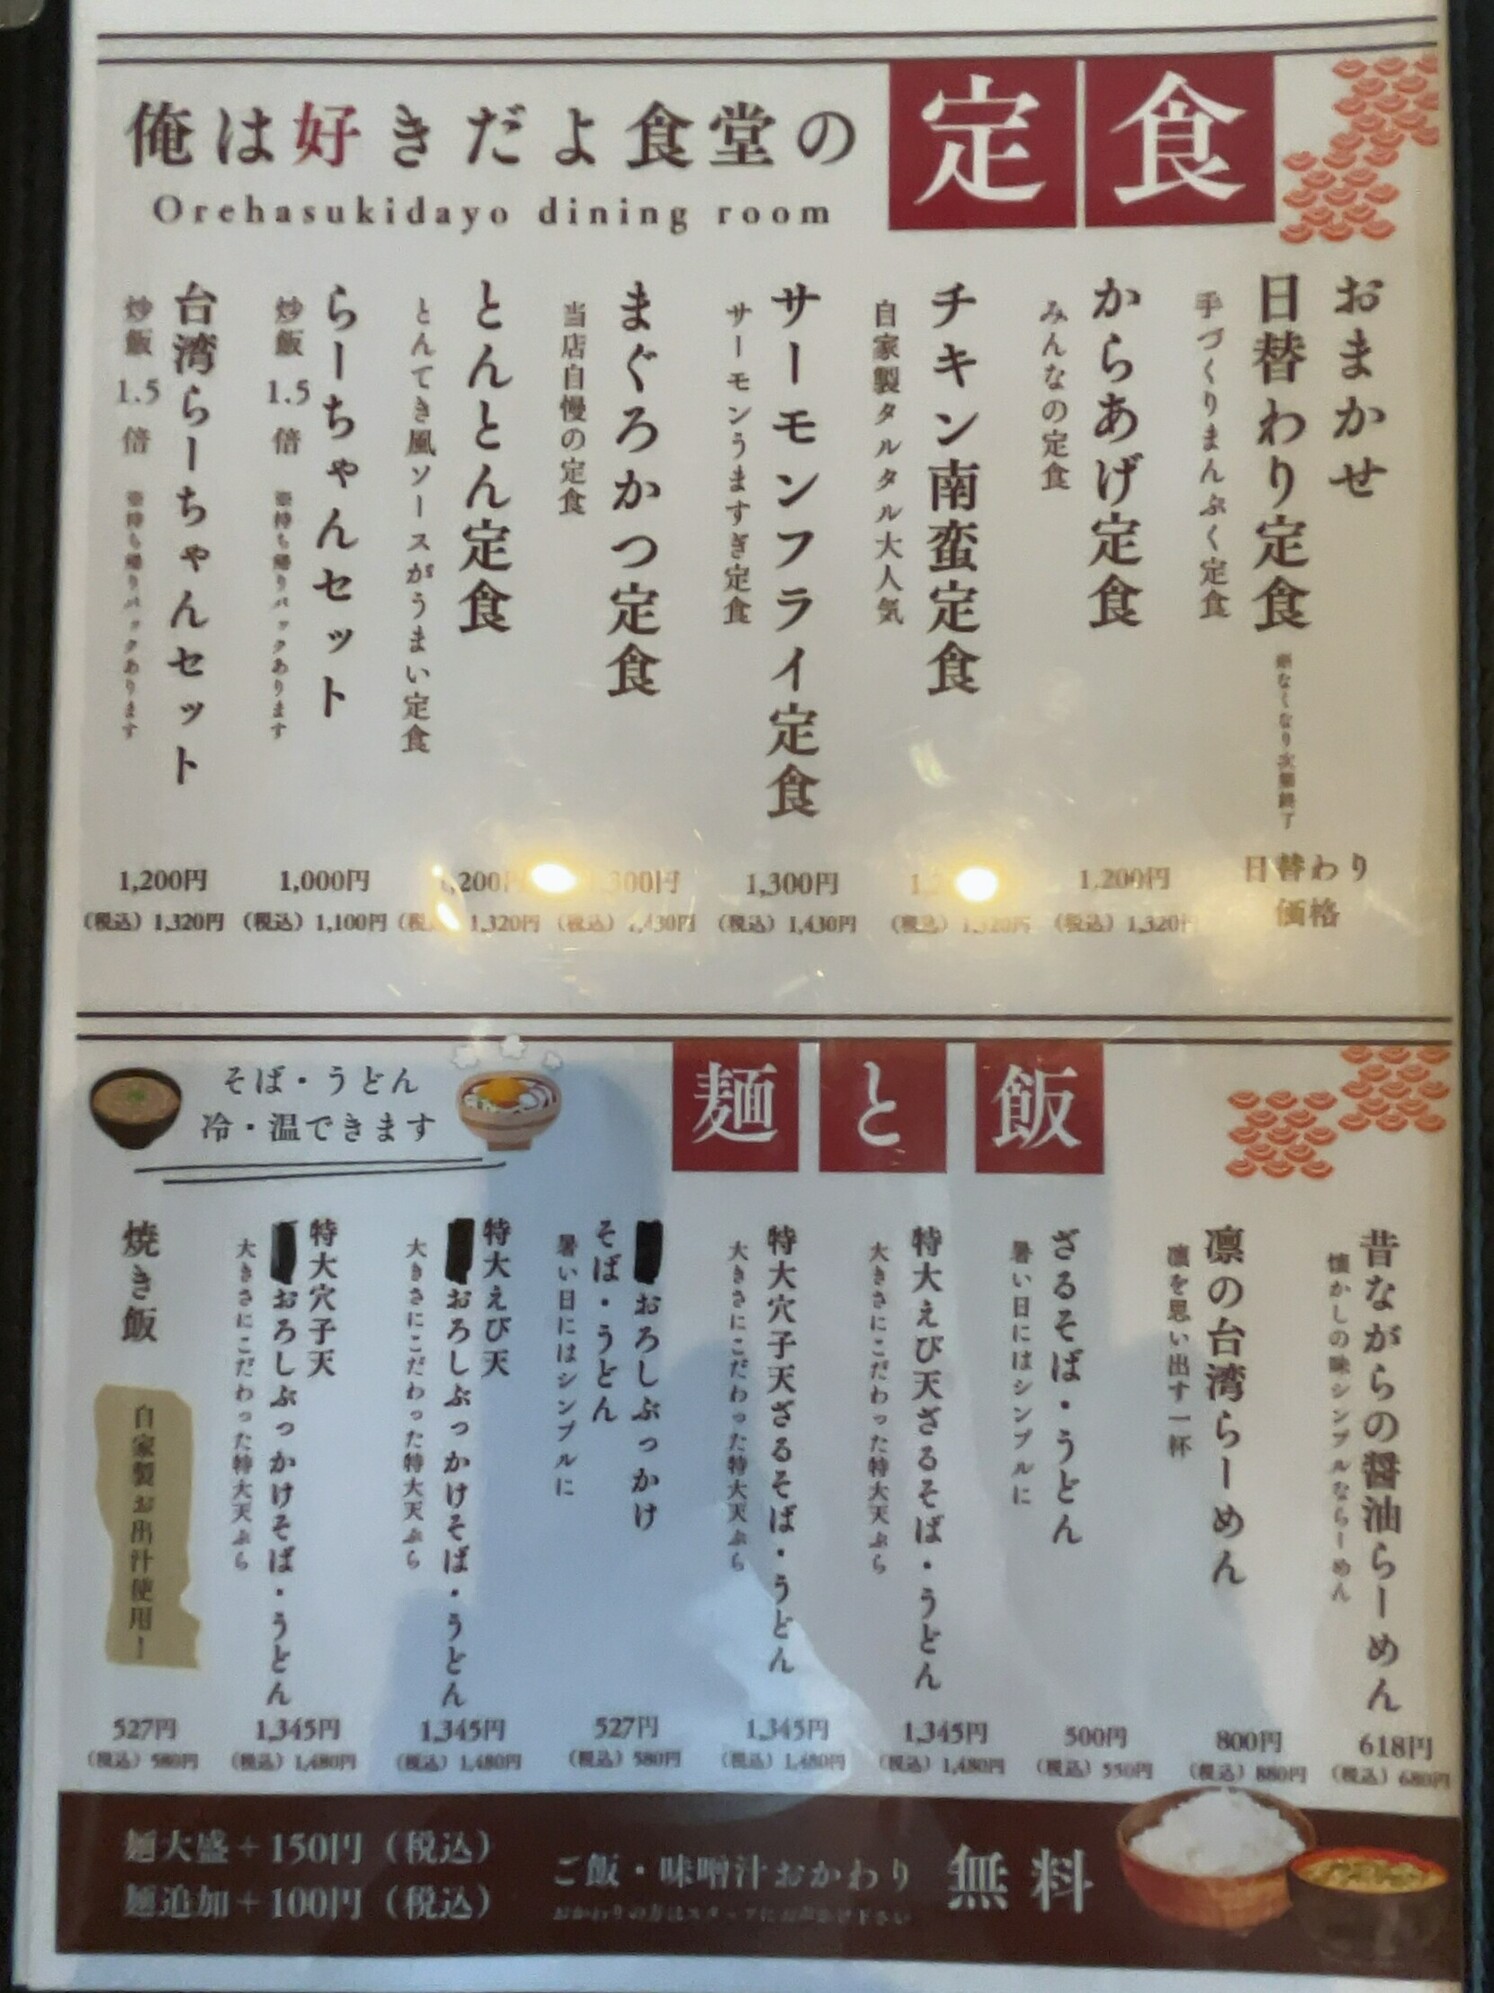 俺は好きだよ食堂の
定食
Orehasukidayo dining room
おまかせ
日替わり定食
無くなり次第終了
手づくりまんぷく定食
日替わり
価格
からあげ定食
みんなの定食
1,200円
(税込) 1,320円
チキン南蛮定食
自家製タルタル大人気
(税込) 1,320円
サーモンフライ定食
サーモンうますぎ定食
1,300円
(税込) 1,430円
まぐろかつ定食
当店自慢の定食
1,300円
(税込) 1,430円
とんとん定食
とんてき風ソースがうまい定食
1,200円
(税込) 1,320円
らーちゃんセット
炒飯 1.5 倍 ※持ち帰りパックあります
1,000円
(税込) 1,100円
台湾らーちゃんセット
炒飯 1.5 倍 ※持ち帰りパックあります
1,200円
(税込) 1,320円
そば・うどん
冷・温できます
麺と飯
昔ながらの醤油らーめん
懐かしの味シンプルならーめん
618円
(税込) 680円
凛の台湾らーめん
凛を思い出す一杯
800円
(税込) 880円
ざるそば・うどん
暑い日にはシンプルに
500円
(税込) 550円
特大えび天ざるそば・うどん
大きさにこだわった特大天ぷら
1,345円
(税込) 1,480円
特大穴子天ざるそば・うどん
大きさにこだわった特大天ぷら
1,345円
(税込) 1,480円
おろしぶっかけ
そば・うどん
暑い日にはシンプルに
527円
(税込) 580円
特大えび天
おろしぶっかけそば・うどん
大きさにこだわった特大天ぷら
1,345円
(税込) 1,480円
特大穴子天
おろしぶっかけそば・うどん
大きさにこだわった特大天ぷら
1,345円
(税込) 1,480円
焼き飯
自家製お出汁使用！
527円
(税込) 580円
麺大盛+150円（税込）
麺追加+100円（税込）
ご飯・味噌汁おかわり 無料
おかわりの方はスタッフにお声がけ下さい